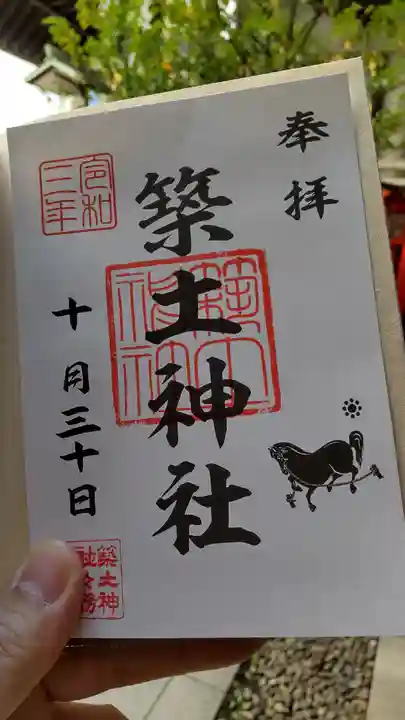 奉拝
築土神社
築土神社
令和三年
十月三十日
築土神社々務所